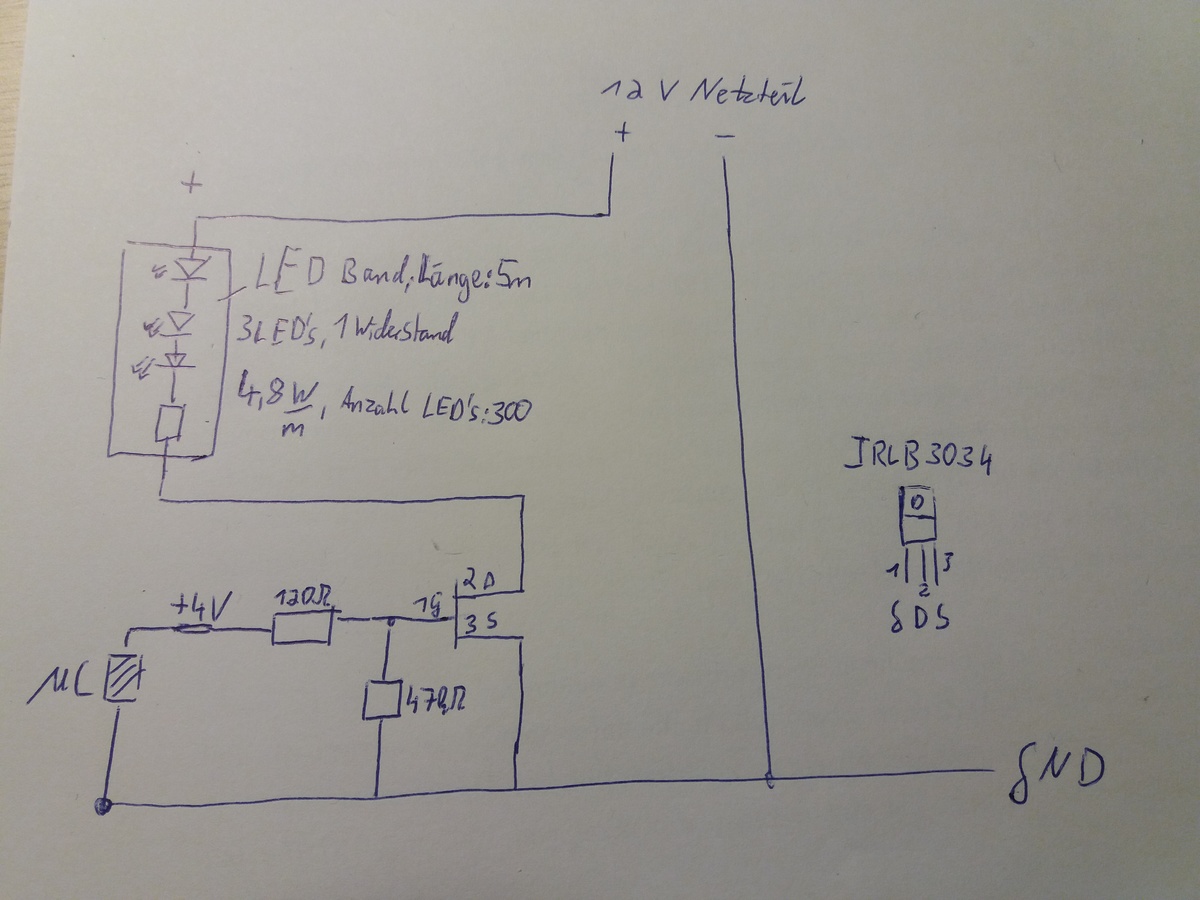 12 V Netzteil
+ −
+
LED Band, Länge: 5m
3LED's, 1 Widerstand
4,8 W/m, Anzahl LED's: 300
IRLB3034
D
1 3
2
G D S
2 D
+4V 120Ω 1G
3 S
µC
47kΩ
GND